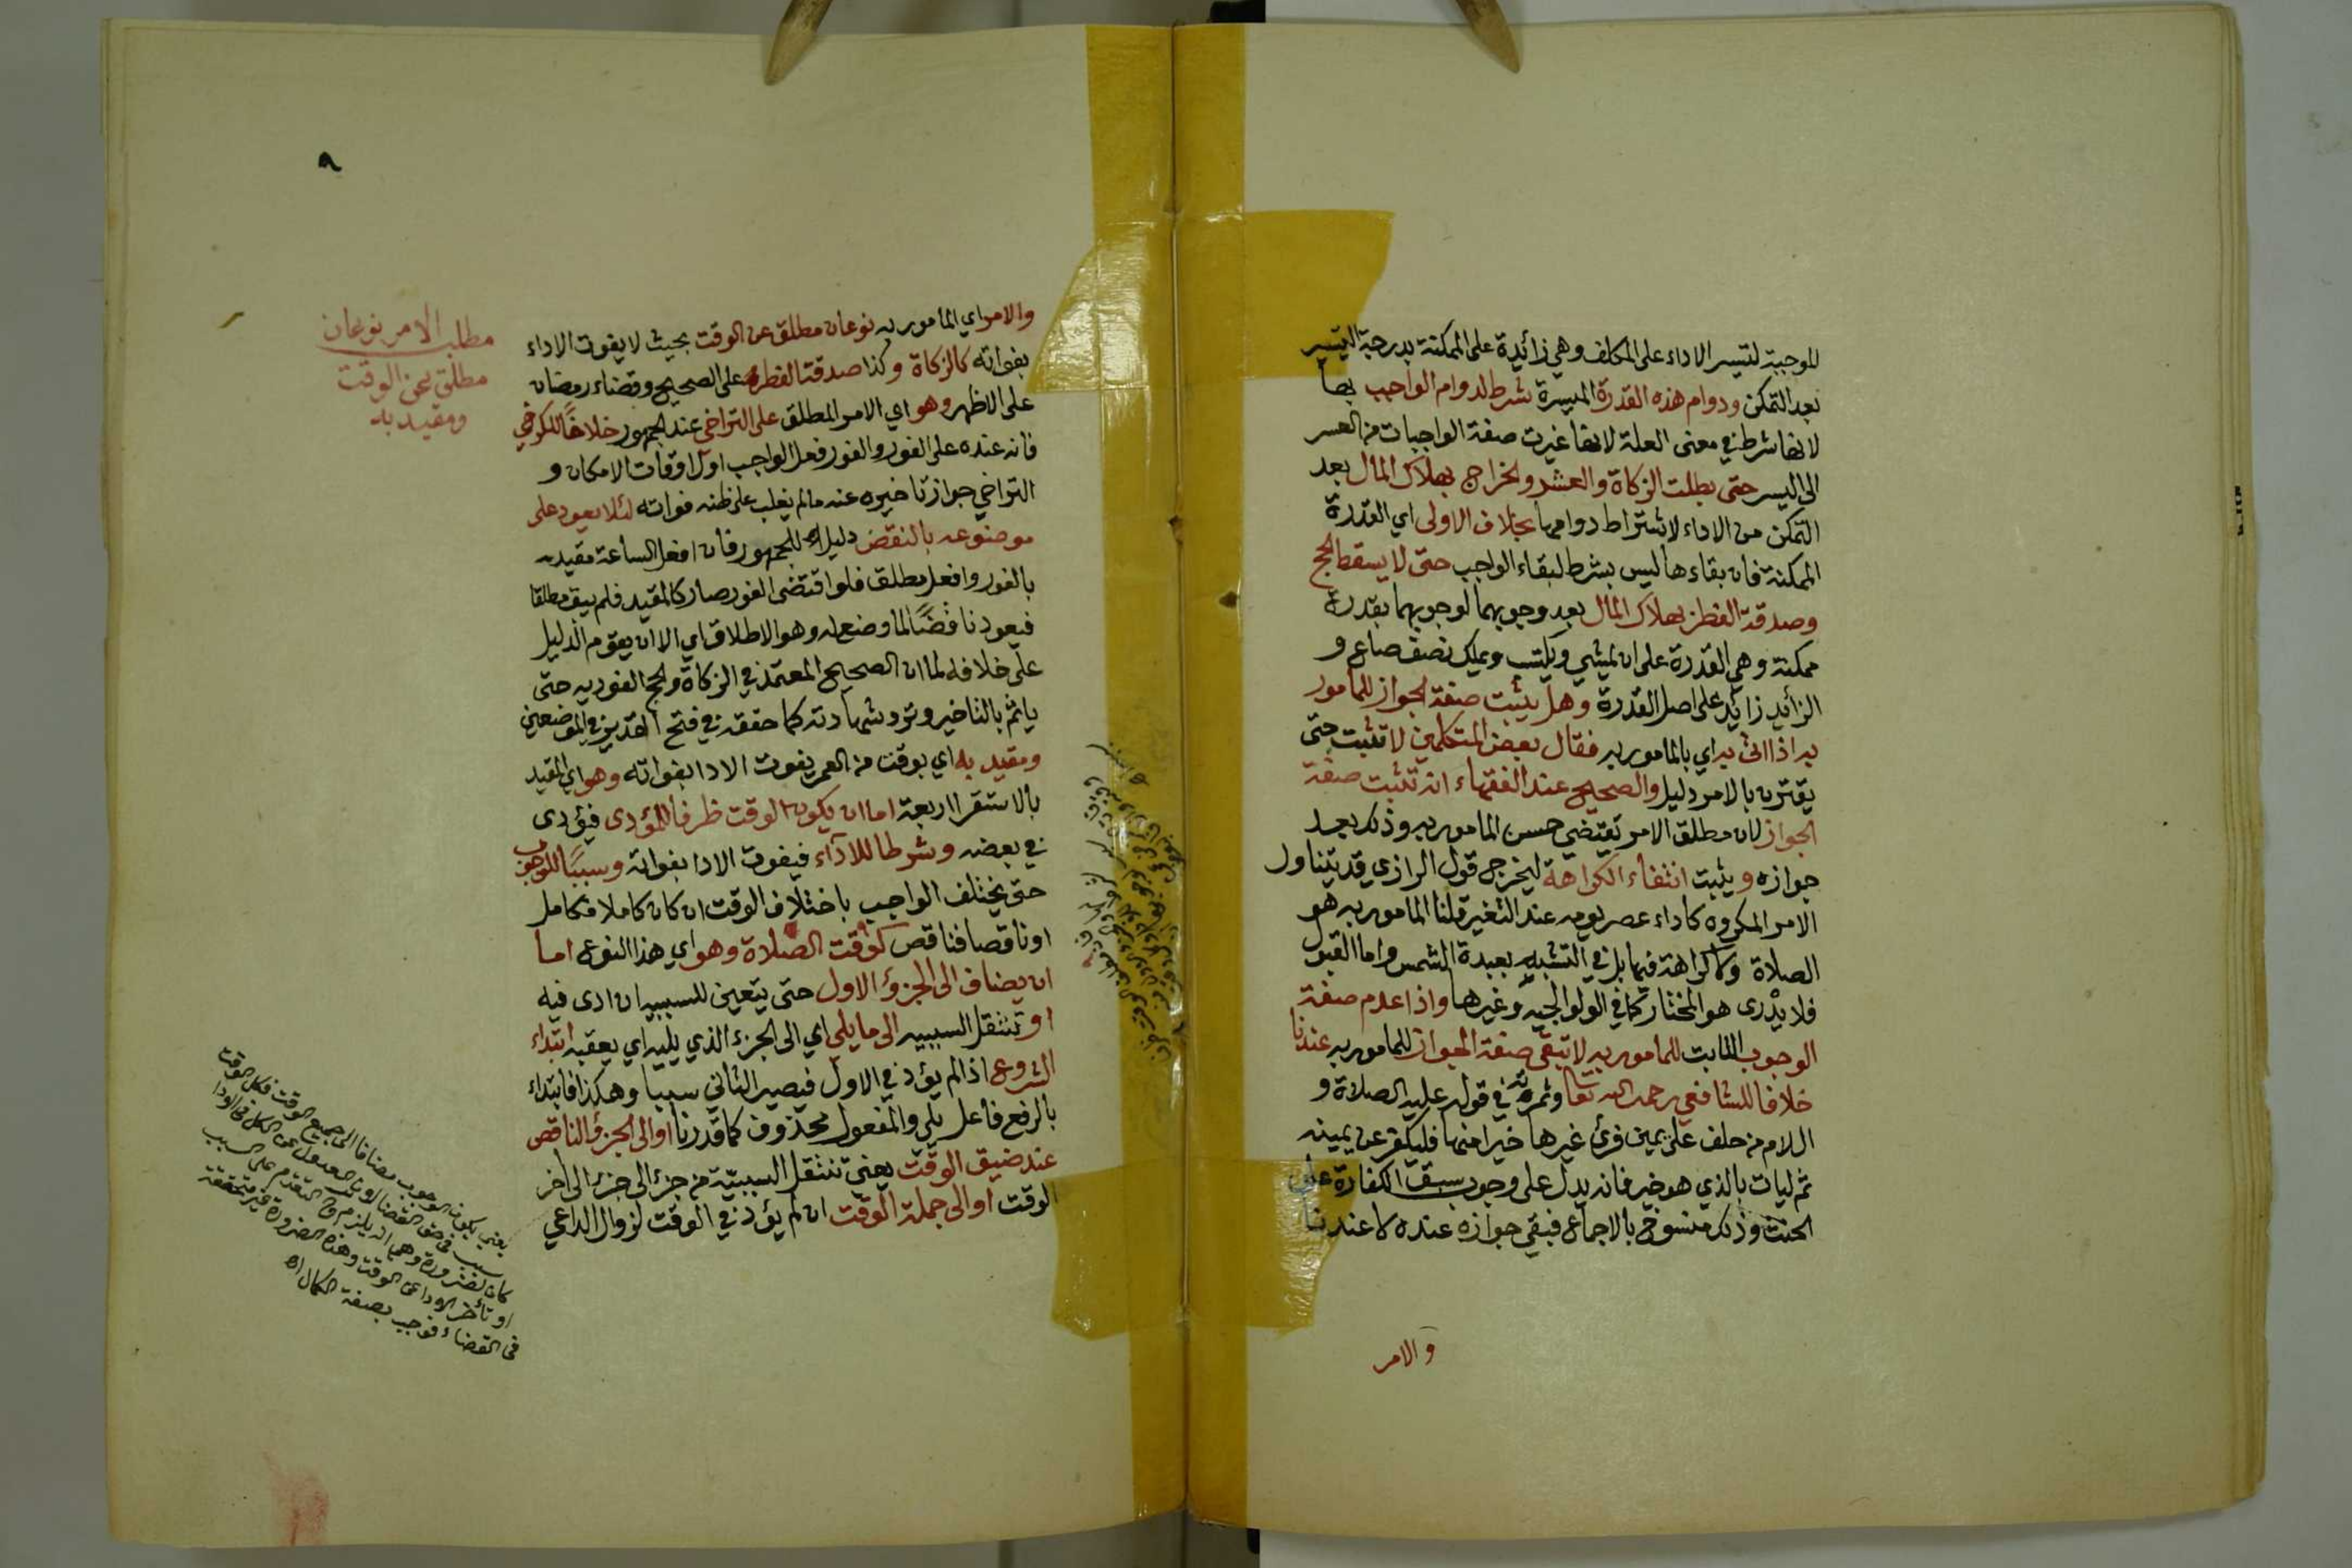 الموجبة لتيسر الاداء على المكلف وهي زائدة على الممكنة بدرجة التيسير
بعد التمكن ودوام هذه القدرة الميسرة شرط لدوام الواجب بها
لانها شرط في معنى العلة لانها غيرت صفة الواجبات من العسر
الى اليسر حتى بطلت الزكاة والعشر والخراج بهلاك المال بعد
التمكن من الاداء لاشتراط دوامها بخلاف الاولى اي القدرة
الممكنة فان بقاءها ليس بشرط لبقاء الواجب حتى لا يسقط الحج
وصدقة الفطر بهلاك المال بعد وجوبهما لوجوبهما بقدرة
ممكنة وهي القدرة على ان يمشي ويكتسب ويملك نصف صاع و
الزائد زائد على اصل القدرة وهل يثبت صفة الجواز للمأمور
به اذا اتى به اي بالمامور به فقال بعض المتكلمين لا تثبت حتى
يقترن بالامر دليل والصحيح عند الفقهاء انه تثبت صفة
الجواز لان مطلق الامر يقتضي حسن المامور به وذلك بعد
جوازه ويثبت انتفاء الكراهة ليخرج قول الرازي قد يتناول
الامر المكروه كاداء عصر يومه عند التغير قلنا المامور به هو
الصلاة ولا كراهة فيها بل في التشبيه بعبدة الشمس واما القبول
فلا يدرى هو المختار كما في الولوالجية وغيرها واذا عدم صفة
الوجوب الثابت للمامور به لا تبقى صفة الجواز للمامور به عندنا
خلافا للشافعي رحمه الله تعا وثمرته في قوله عليه الصلاة و
السلام من حلف على يمين فرئ غيرها خيرا منها فليكفر عن يمينه
ثم ليات بالذي هو خير فانه يدل على وجوب سبق الكفارة على
الحنث وذلك منسوخ بالاجماع فبقي جوازه عنده لا عندنا
والامر
٨
مطلب الامر نوعان
مطلق عن الوقت
ومقيد به
والامر اي المامور به نوعان مطلق عن الوقت بحيث لا يفوت الاداء
بفواته كالزكاة وكذا صدقة الفطر على الصحيح وقضاء رمضان
على الاظهر وهو اي الامر المطلق على التراخي عند الجمهور خلافا للكرخي
فانه عنده على الفور والفور فعل الواجب اول اوقات الامكان و
التراخي جواز تاخيره عنه ما لم يغلب على ظنه فواته لئلا يعود على
موضوعه بالنقض دليل للجمهور فان افعل الساعة مقيد
بالفور وافعل مطلق فلو اقتضى الفور صار كالمقيد فلم يبق مطلقا
فيعود ناقضا لما وضع له وهو الاطلاق اي الا ان يقوم الدليل
على خلافه لما ان الصحيح المعتمد في الزكاة والحج الفورية حتى
ياثم بالتاخير وترد شهادته كما حققه في فتح القدير في الموضعين
ومقيد به اي بوقت من العمر يفوت الادا بفواته وهو اي المقيد
بالاستقرا اربعة اما ان يكون الوقت ظرفا للمؤدى فيؤدى
في بعضه وشرطا للاداء فيفوت الادا بفواته وسببا للوجوب
حتى يختلف الواجب باختلاف الوقت ان كان كاملا فكامل
او ناقصا فناقص كوقت الصلاة وهو اي هذا النوع اما
ان يضاف الى الجزؤ الاول حتى يتعين للسببية ان ادى فيه
او تنتقل السببية الى ما يلي اي الى الجزء الذي يليه اي يعقبه ابتداء
الشروع اذا لم يؤد في الاول فيصير الثاني سببا وهكذا فابتداء
بالرفع فاعل يلي والمفعول محذوف كما قدرنا او الى الجزؤ الناقص
عند ضيق الوقت يعني تنتقل السببية من جزء الى جزء الى اخر
الوقت او الى جملة الوقت ان لم يؤد في الوقت لزوال الداعي
يعني يكون الوجوب مضافا الى جميع الوقت فكل الوقت
سبب في حق القضا لان العدول عن الكل في الادا
كان لضرورة وهي انه يلزم التقدم على السبب
او تأخر الاداء عن الوقت وهذه الضرورة غير متحققة
في القضاء فوجب بصفة الكمال اه